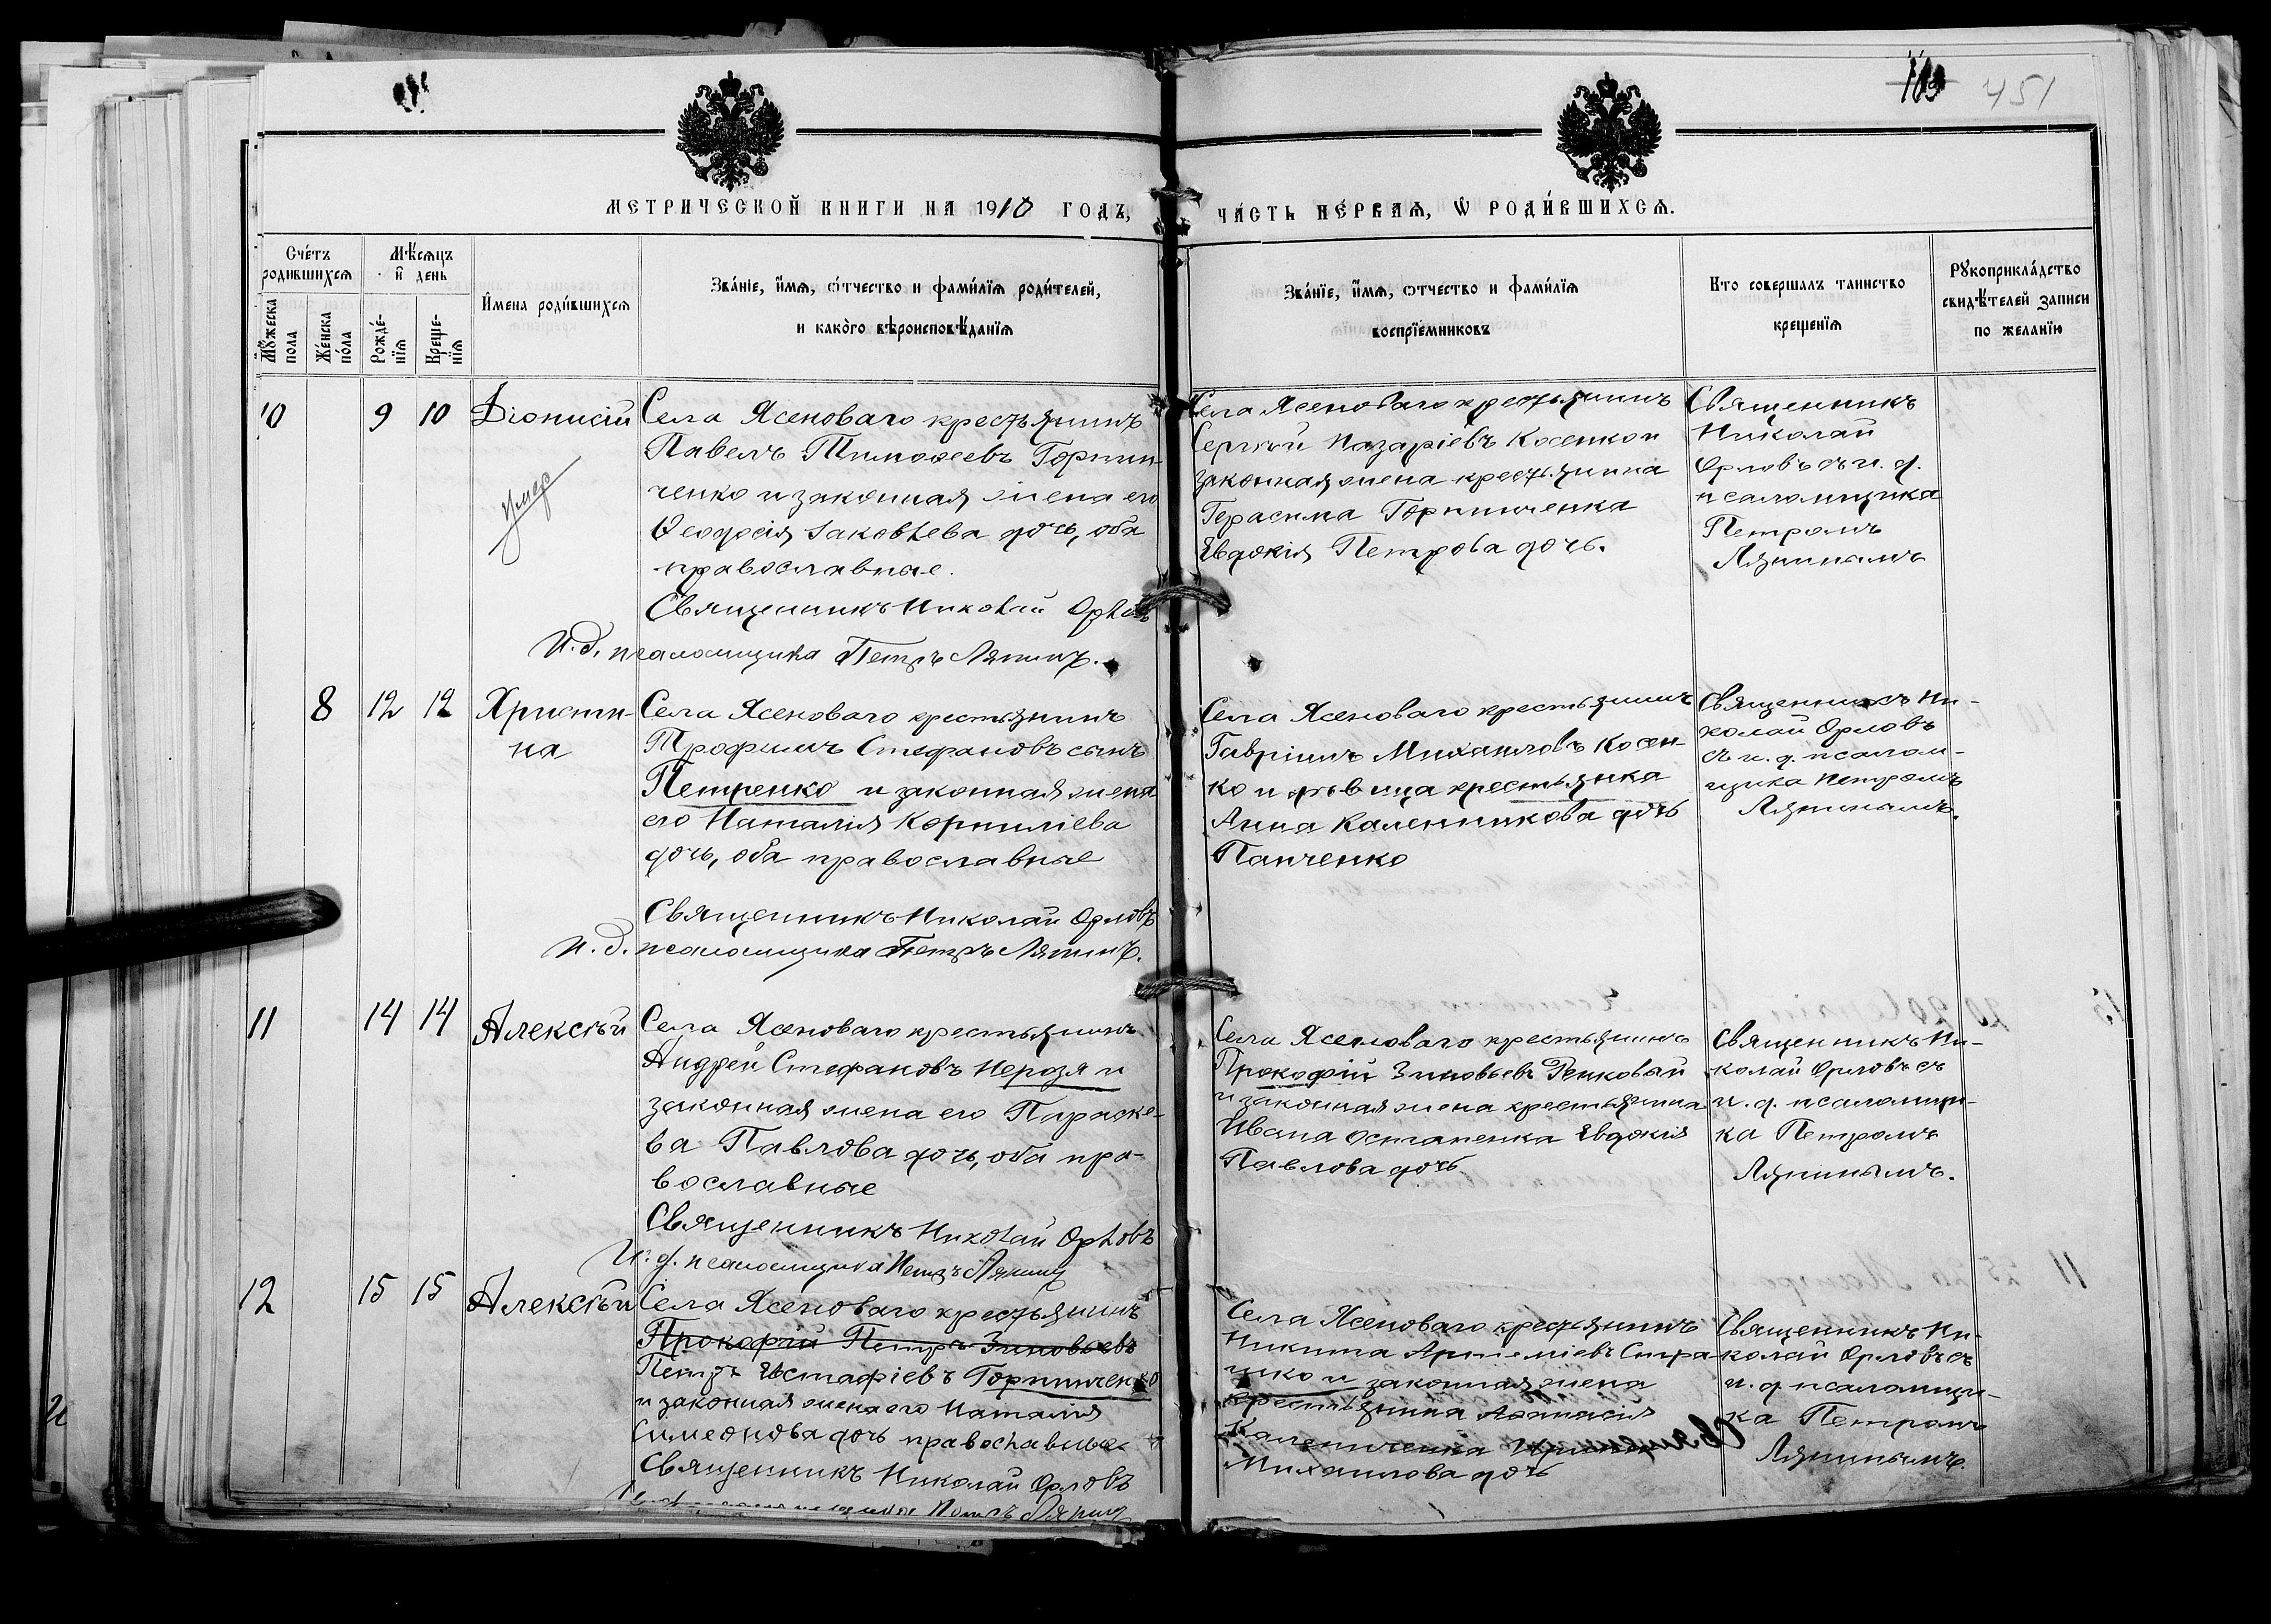 451
МЕТРИЧЕСКОЙ КНИГИ НА 1910 ГОДЪ,
ЧАСТЬ ПЕРВАЯ, Ѡ РОДИВШИХСЯ.
Счетъ родившихся
Мужеска пола
Женска пола
Мѣсяцъ и день
Рождения
Крещенія
Имена родившихся
Званіе, имя, отчество и фамилія родителей,
и какого вѣроисповѣданія
Званіе, имя, отчество и фамилія
воспріемниковъ
Кто совершалъ таинство
крещенія
Рукоприкладство
свидѣтелей записи
по желанію
10
9
10
Діонисій
умер
Села Ясеноваго крестьянинъ
Павелъ Тимоѳеевъ Горпин-
ченко и законная жена его
Ѳеодосія Іаковлева дочь, оба
православные.
Священникъ Николай Орловъ
И.д. псаломщика Петръ Ляпинъ.
Села Ясеноваго крестьянинъ
Сергѣй Назаріевъ Косенко и
законная жена крестьянина
Герасима Горпинченка
Евдокія Петрова дочь.
Священникъ
Николай
Орловъ съ и. д.
псаломщика
Петромъ
Ляпинымъ
8
12
12
Христи-
на
Села Ясеноваго крестьянинъ
Трофимъ Стефановъ сынъ
Петренко и законная жена
его Наталія Корниліева
дочь, оба православные
Священникъ Николай Орловъ
И.д. псаломщика Петръ Ляпинъ.
Села Ясеноваго крестьянинъ
Гавріилъ Михаиловъ Косен-
ко и дѣвица крестьянка
Анна Каленикова дочь
Панченко
Священникъ Ни-
колай Орловъ
съ и. д. псалом-
щика Петромъ
Ляпинымъ.
11
14
14
Алексѣй
Села Ясеноваго крестьянинъ
Андрей Стефановъ Нерозя и
законная жена его Параске-
ва Павлова дочь, оба пра-
вославные
Священникъ Николай Орловъ
И. д. псаломщика Петръ Ляпинъ
Села Ясеноваго крестьянинъ
Прокофій Зиновьевъ
и законная жена крестьянина
Ивана Остапенка Евдокія
Павлова дочь
Священникъ Ни-
колай Орловъ съ
и. д. псаломщи-
ка Петромъ
Ляпинымъ.
12
15
15
Алексѣй
Села Ясеноваго крестьянинъ
Прокофій Петръ Зиновьевъ
Петръ Евстафіевъ Горпинченко
и законная жена его Наталія
Симеонова дочь православные
Священникъ Николай Орловъ
Петръ Ляпинъ
Села Ясеноваго крестьянинъ
Никита Артеміевъ
и законная жена
крестьянина Аѳанасія
Михаилова дочь
Священникъ Ни-
колай Орловъ съ
и. д. псаломщи-
ка Петромъ
Ляпинымъ.